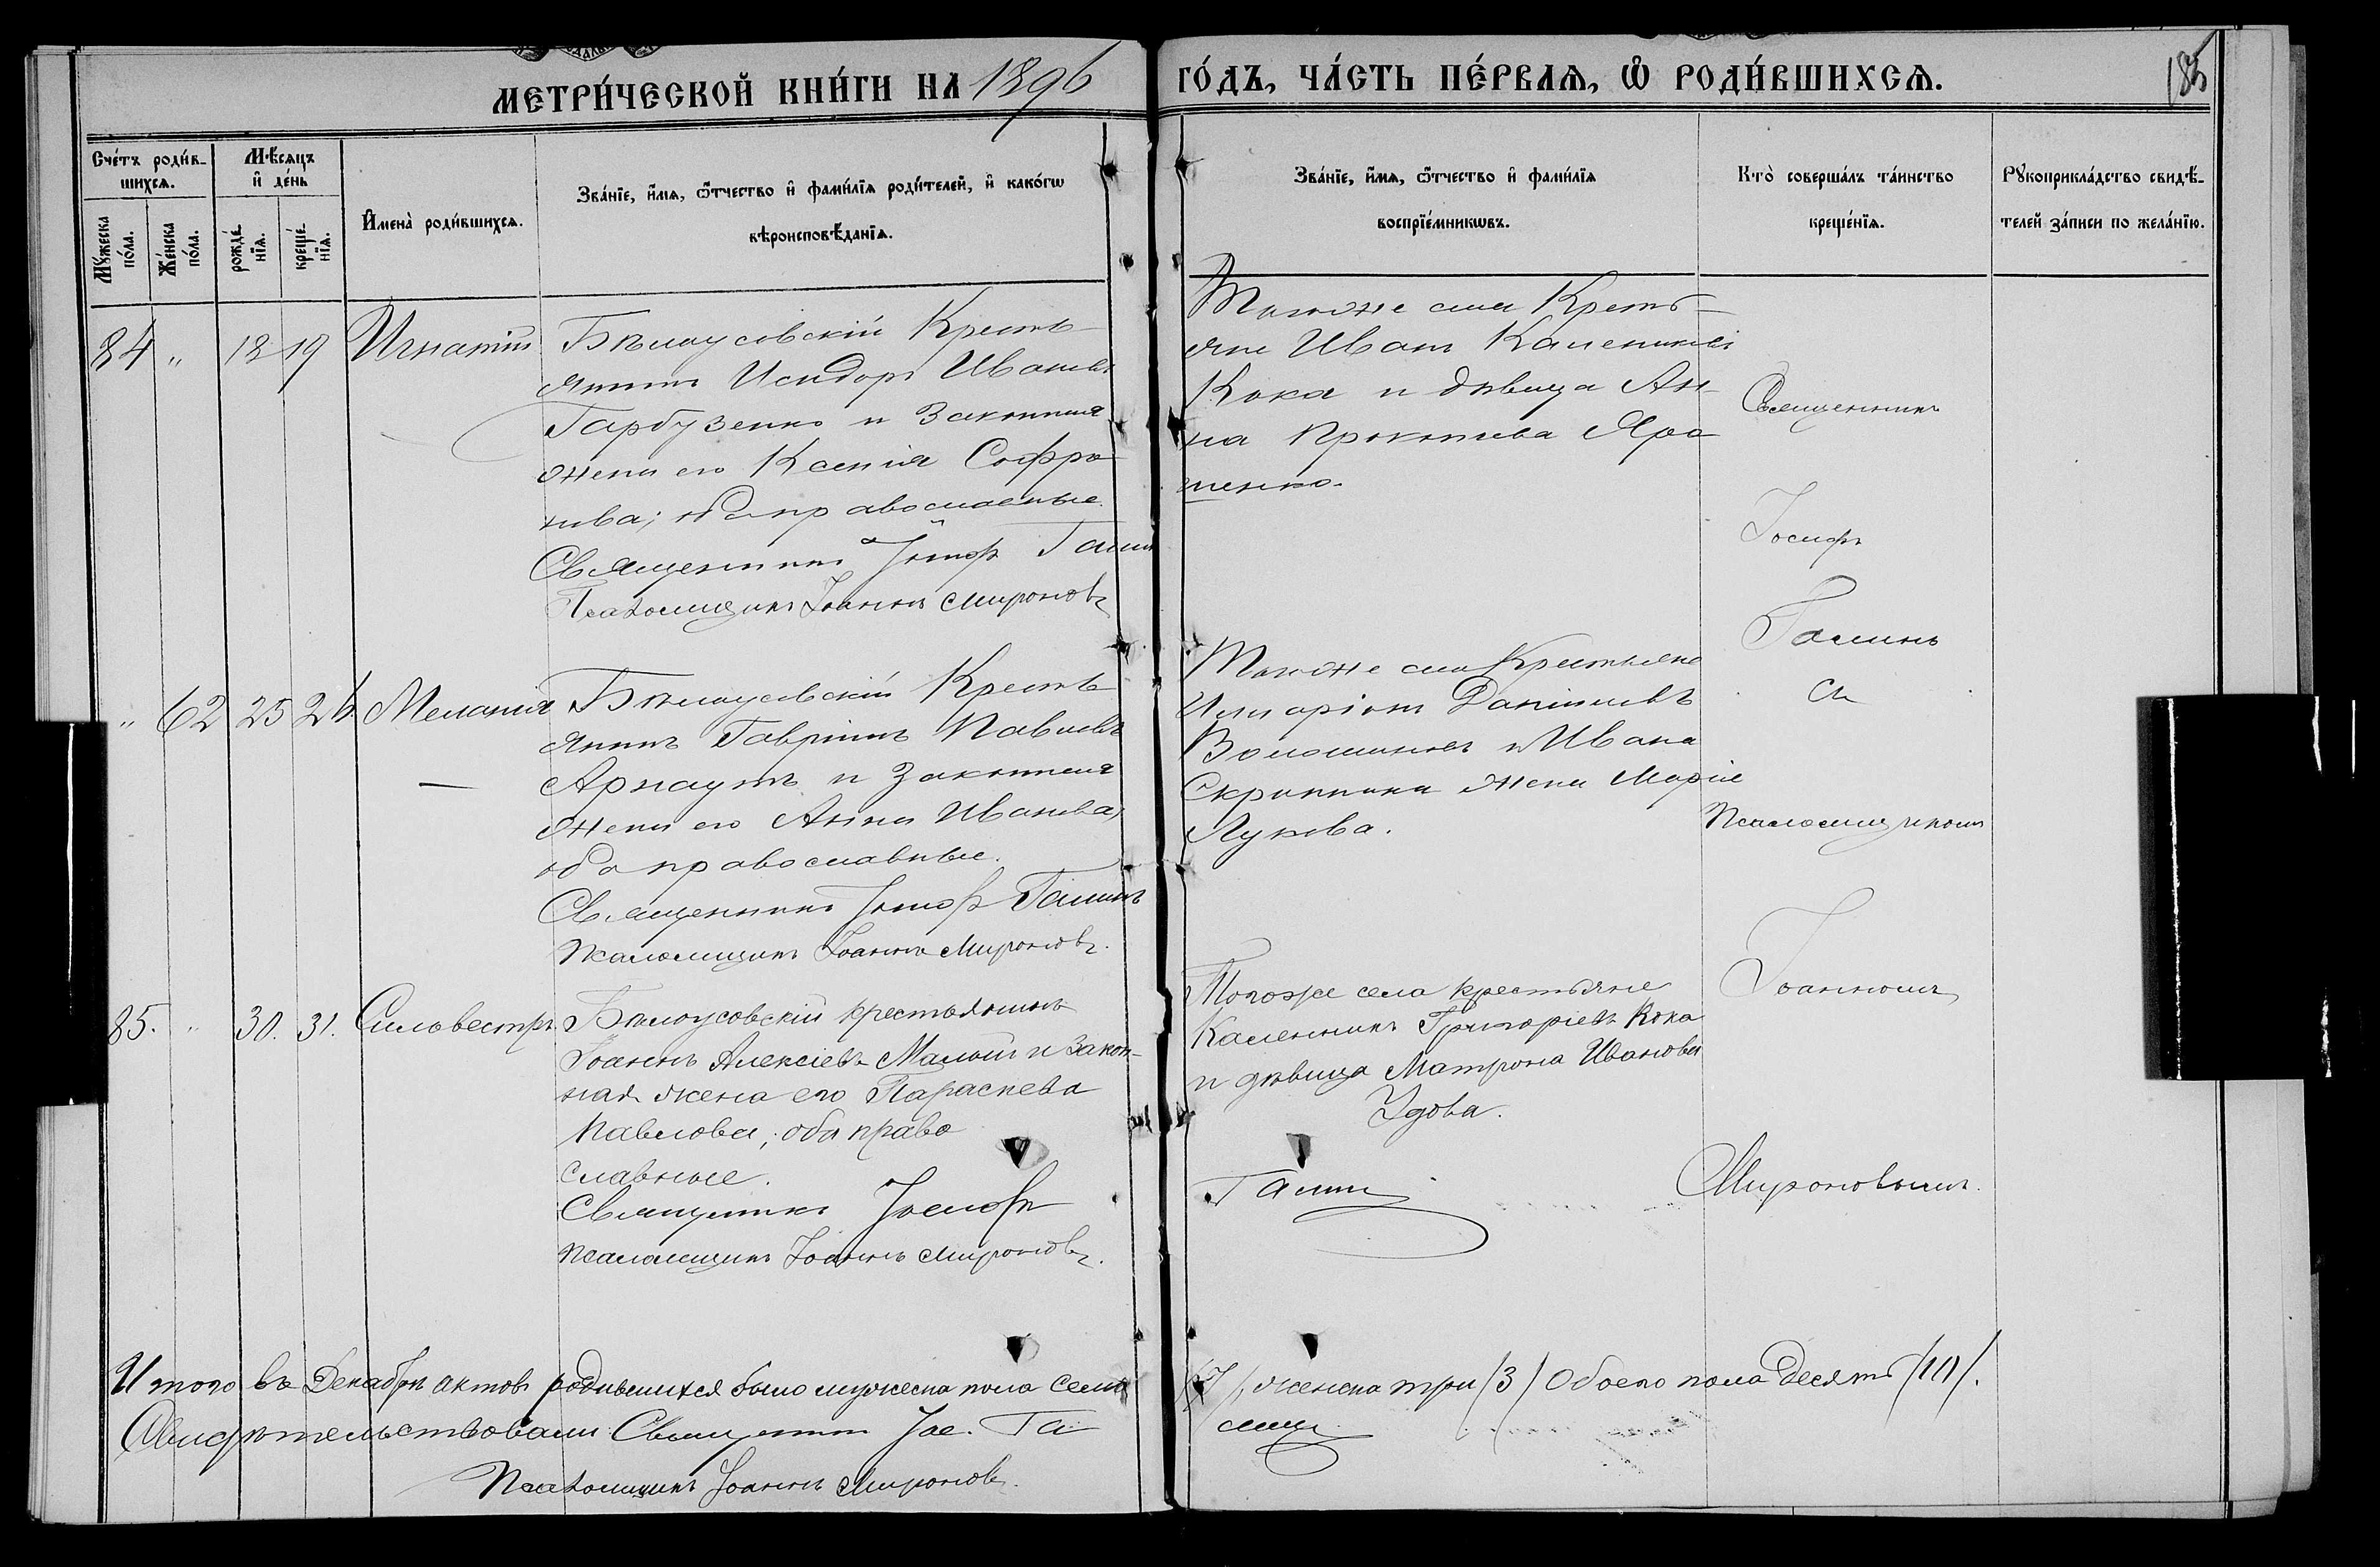 МЕТРИ́ЧЕСКОЙ КНИ́ГИ НА 1896 ГО́ДЪ, ЧА́СТЬ ПЕ́РВАѦ, Ѡ РОДИ́ВШИХСѦ.
185
Сче́тъ роди́в-
шихсѧ.
Мѣ́сѧцъ
и҆ де́нь
Мꙋ́жеска
по́ла.
Же́нска
по́ла.
рожде́-
нїѧ.
креще́-
нїѧ.
И҆мена̀ роди́вшихсѧ.
Зва́нїе, и҆́мѧ, ѻ҆́тчество и҆ фами́лїѧ роди́телей, и҆ како́гѡ
вѣроисповѣ́данїѧ.
Зва́нїе, и҆́мѧ, ѻ҆́тчество и҆ фами́лїѧ
воспрїе́мникѡвъ.
Кто̀ соверша́лъ та́инство
креще́нїѧ.
Рꙋкоприкла́дство свидѣ́-
телей за́писи по жела́нїю.
84 „ 18 19 Игнатій
Бѣлоусовскій Кресть-
янинъ Исидоръ Ивановъ
Гарбузенко и Законная
жена его Ксенія Софро-
нова; оба православные.
Священникъ Іосифъ Галинъ
Псаломщикъ Іоаннъ Мироновъ
Тогоже села Кресть-
яне Иванъ Калениковъ
Кока и дѣвица Ан-
на Прокопіева Яро-
шенко.
Священникъ
Іосифъ
Галинъ
съ
Псаломщикомъ
Іоанномъ
Мироновымъ.
„ 62 25 26. Меланія
Бѣлоусовскій Кресть-
янинъ Гавріилъ Павловъ
Арнаутъ и Законная
жена его Анна Иванова,
оба православные.
Священникъ Іосифъ Галинъ
Псаломщикъ Іоаннъ Мироновъ.
Тогоже села Крестьяне
Иларіонъ Даніиловъ
Волошиновъ и Ивана
Скрипника жена Марія
Лукова.
85. „ 30. 31. Сильвестръ
Бѣлоусовскій крестьянинъ
Іоаннъ Алексіевъ Малый и Закон-
ная жена его Параскева
Павлова; оба право
славные.
Священникъ Іосифъ Галинъ
Псаломщикъ Іоаннъ Мироновъ.
Тогоже села крестьяне
Каленникъ Григоріевъ Кока
и дѣвица Матрона Иванова
Удова.
Итого въ Декабрѣ актовъ родившихся было мужеска пола семь /7/, женска три /3/ Обоего пола Десять /10/.
Свидѣтельствовали: Священникъ Іос. Га-
Псаломщикъ Іоаннъ Мироновъ.